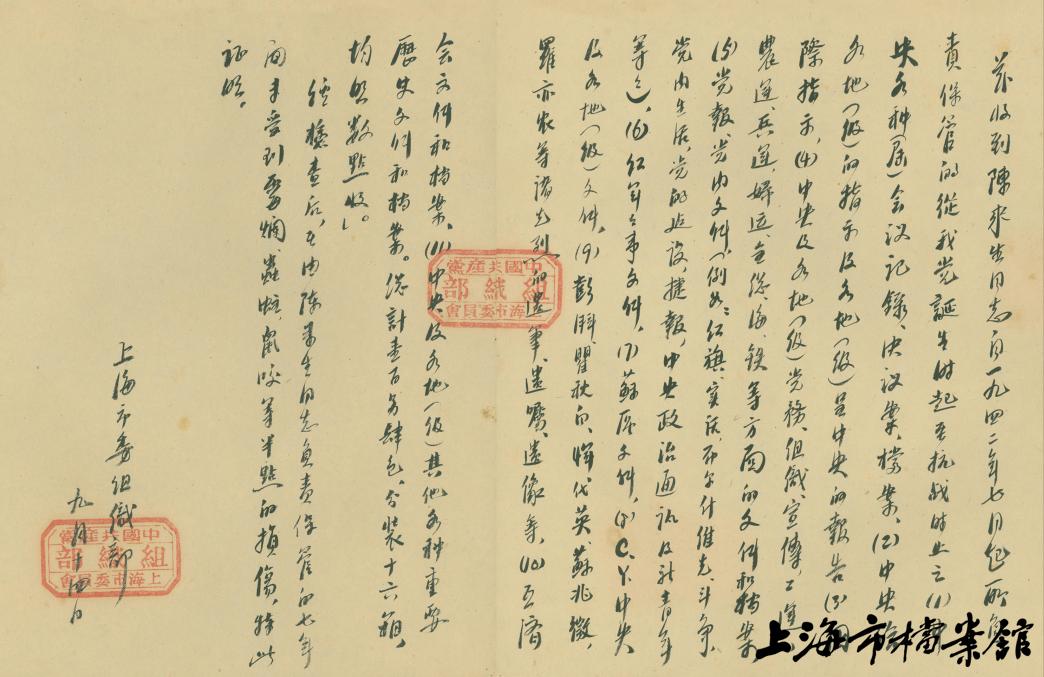 茲收到陳來生同志自一九四二年七月起所負
責保管的從我党誕生時起至抗战时止之(1)
央各种(届)会议記錄、决议案、檔案、(2)中央給
各地(级)的指示及各地(级)呈中央的報告(3)国
際指示,(4)中央及各地(级)党務、组織、宣傳、工運
農運、兵運、婦运、全总、海、鉄等方面的文件和檔案
(5)党報、党内文件,(例如:红旗、实话、布尔什维克、斗争、
党内生活、党的建设、捷報,中央政治通讯及新青年
等等),(6)红军军事文件,(7)蘇区文件,(8)C.Y.中央
及各地(级)文件,(9)彭湃、瞿秋白、惲代英、蘇兆徵、
羅亦农等諸先烈的遗筆、遗囑、遗像等,(10)互濟
会文件和檔案,(11)中央及各地(级)其他各种重要
歷史文件和檔案。总计壹百另肆包,分裝十六箱,
均照数點收。
經檢查后,在由陈来生同志負責保管的七年
间未受到霉爛、蟲蛀、鼠咬等半點的損傷,特此
证明。
上海市委组織部
九月十四日
中國共產黨
組織部
上海市委員會
中國共產黨
組織部
上海市委員會
上海市檔案館